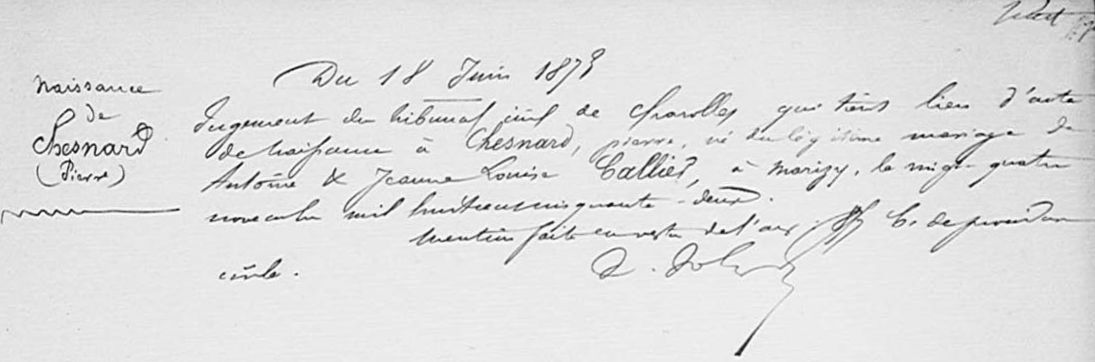 Naissance
de
Chesnard
(Pierre)
Du 18 Juin 1878
Jugement du tribunal civil de Charolles qui tient lieu d'acte
de naissance à Chesnard, pierre, né du légitime mariage de
Antoine & Jeanne Louise Callier, à Marizy, le vingt quatre
novembre mil huit cent cinquante-deux.
Mention faite en vertu de l'art C. de procédure
civile.